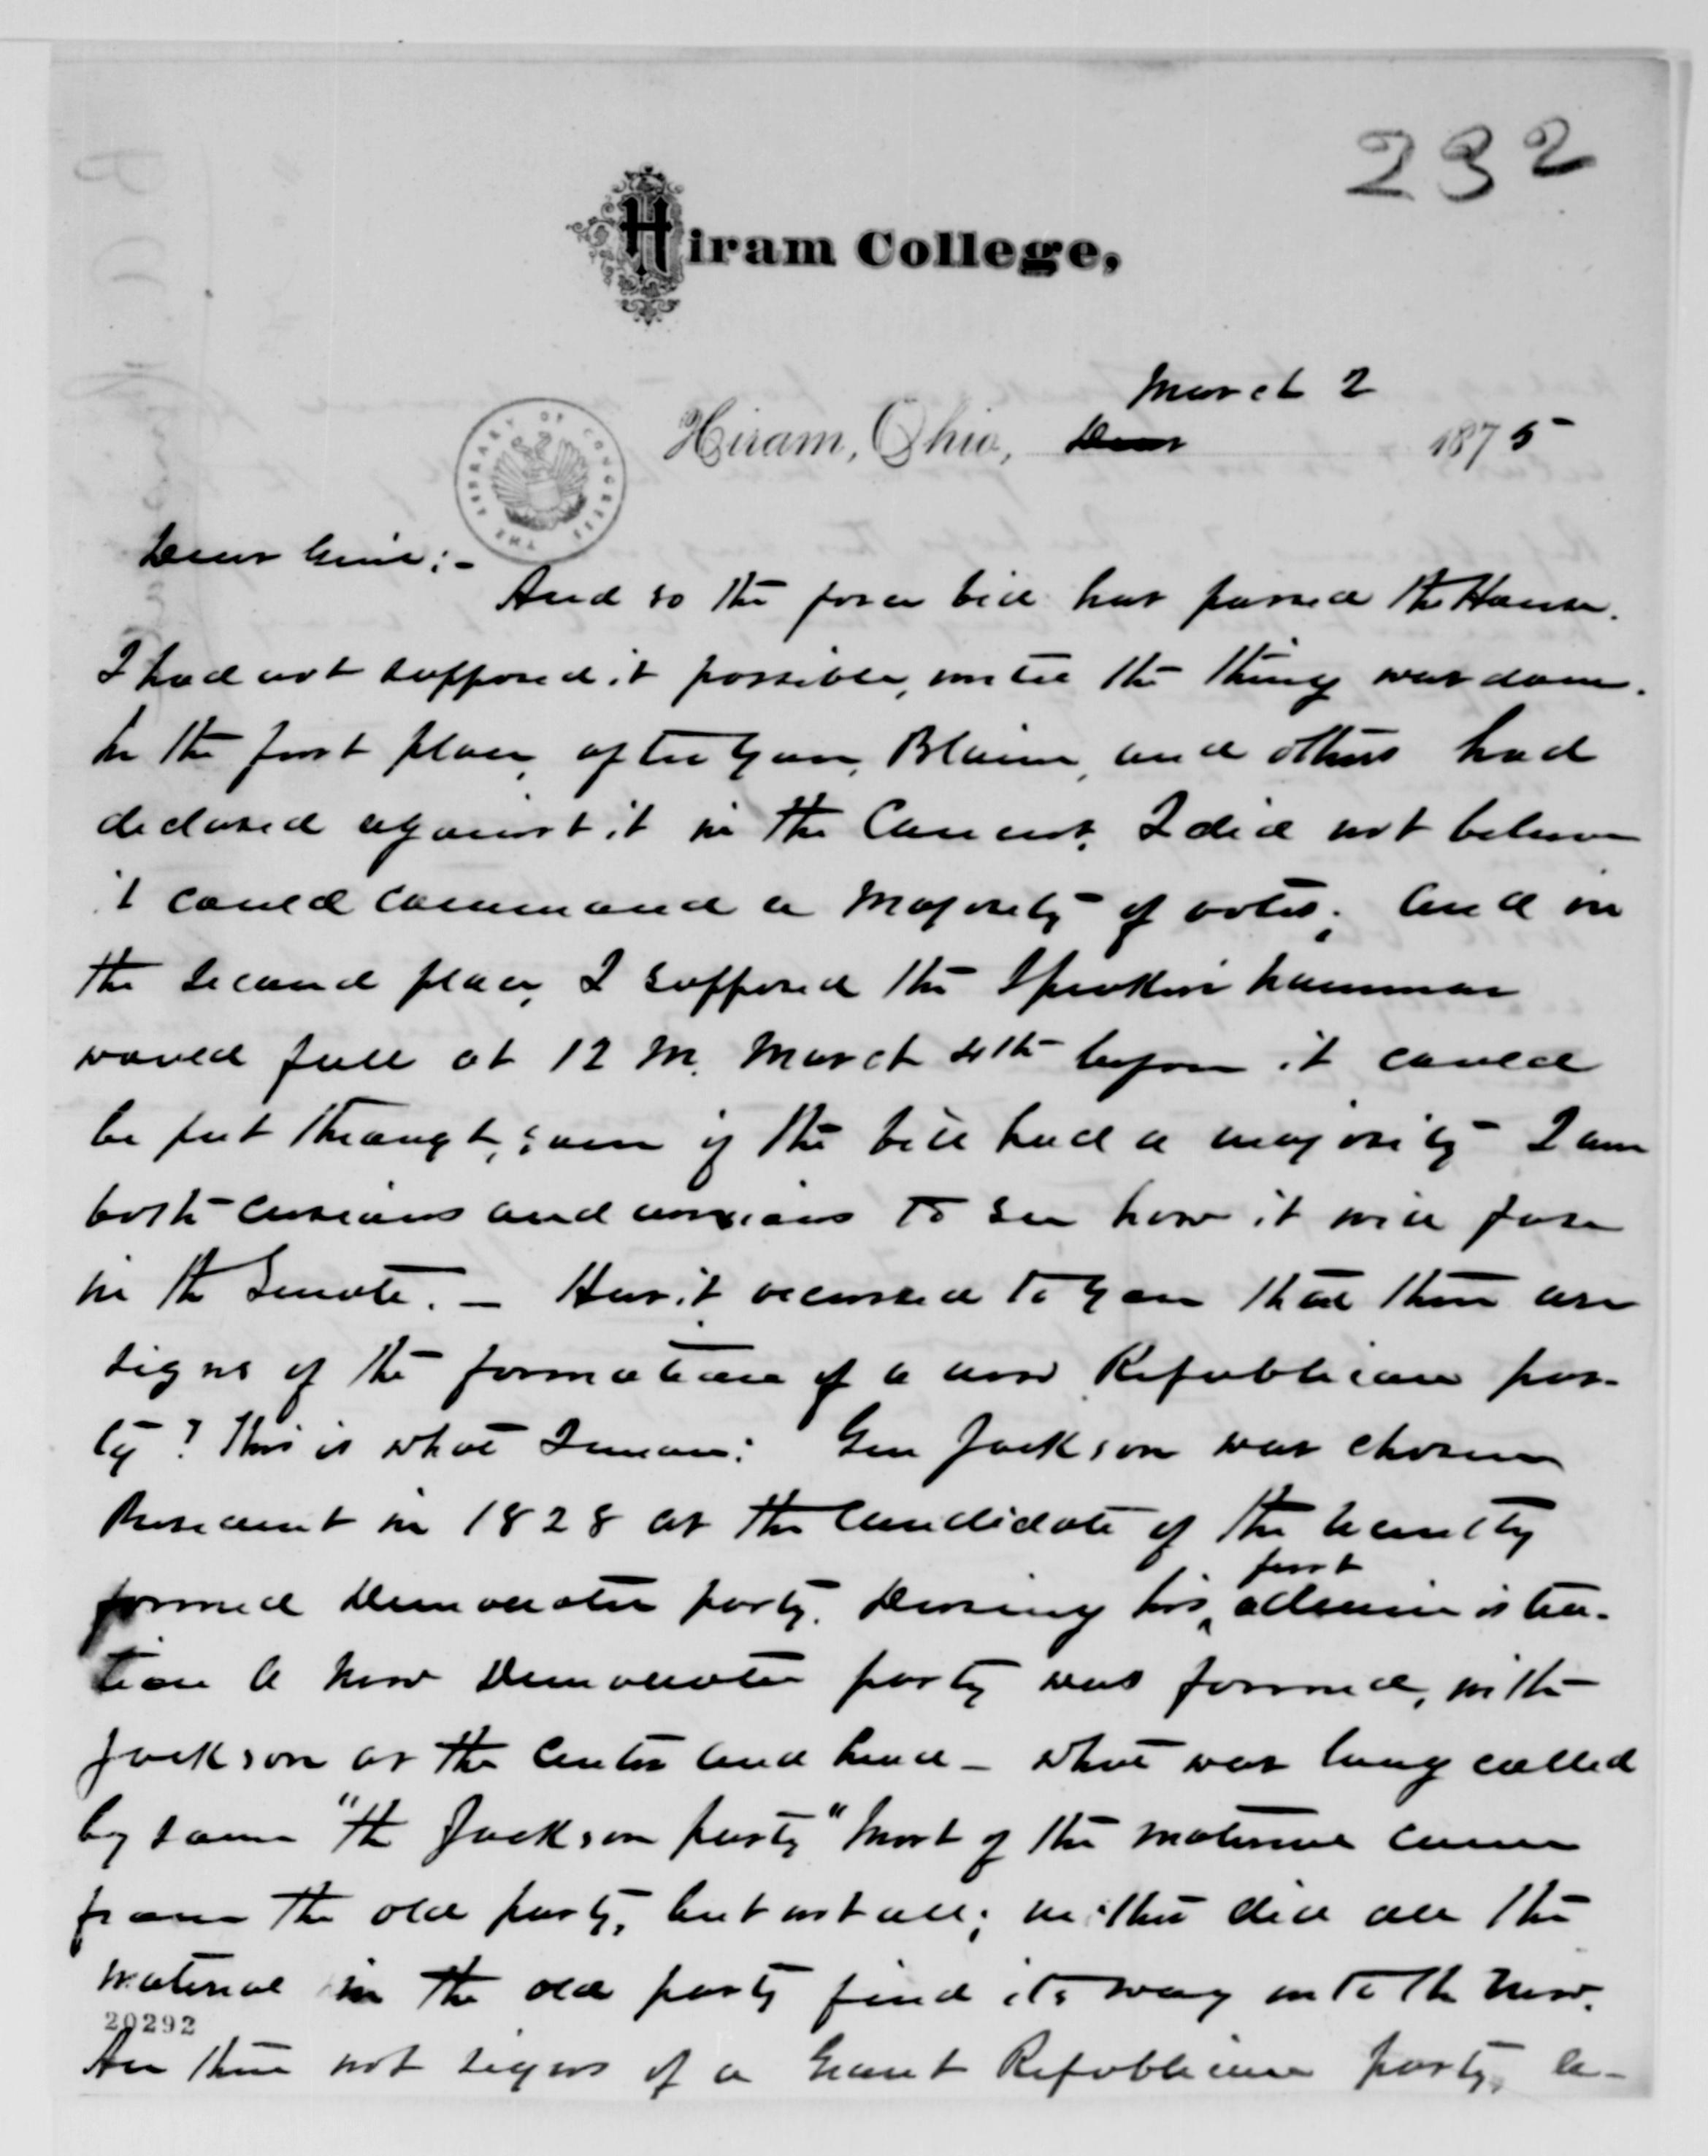 232
Hiram College,
March 2
Hiram, Ohio, Dear 1875
THE LIBRARY OF CONGRESS
Dear Genl:-
And so the force bill has passed the House.
I had not supposed it possible, until the thing was done.
In the first place, after you, Blaine, and others had
declared against it in the Caucus, I did not believe
it could command a majority of votes; and in
the second place, I supposed the Speaker's hammer
would fall at 12 M. March 4th before it could
be put through, even if the bill had a majority. I am
both curious and anxious to see how it will fare
in the Senate. - Has it occurred to you that there are
signs of the formation of a new Republican par-
ty? This is what I mean: Gen Jackson was chosen
President in 1828 as the candidate of the
first
formed Democratic party. During his ‸ administra-
tion a new Democratic party was formed, with
Jackson as the center and head - what was long called
by some "the Jackson party" Most of the material came
from the old party, but not all; neither did all the
material in the old party find its way into the new.
20292
Are there not signs of a Grant Republican party, a-